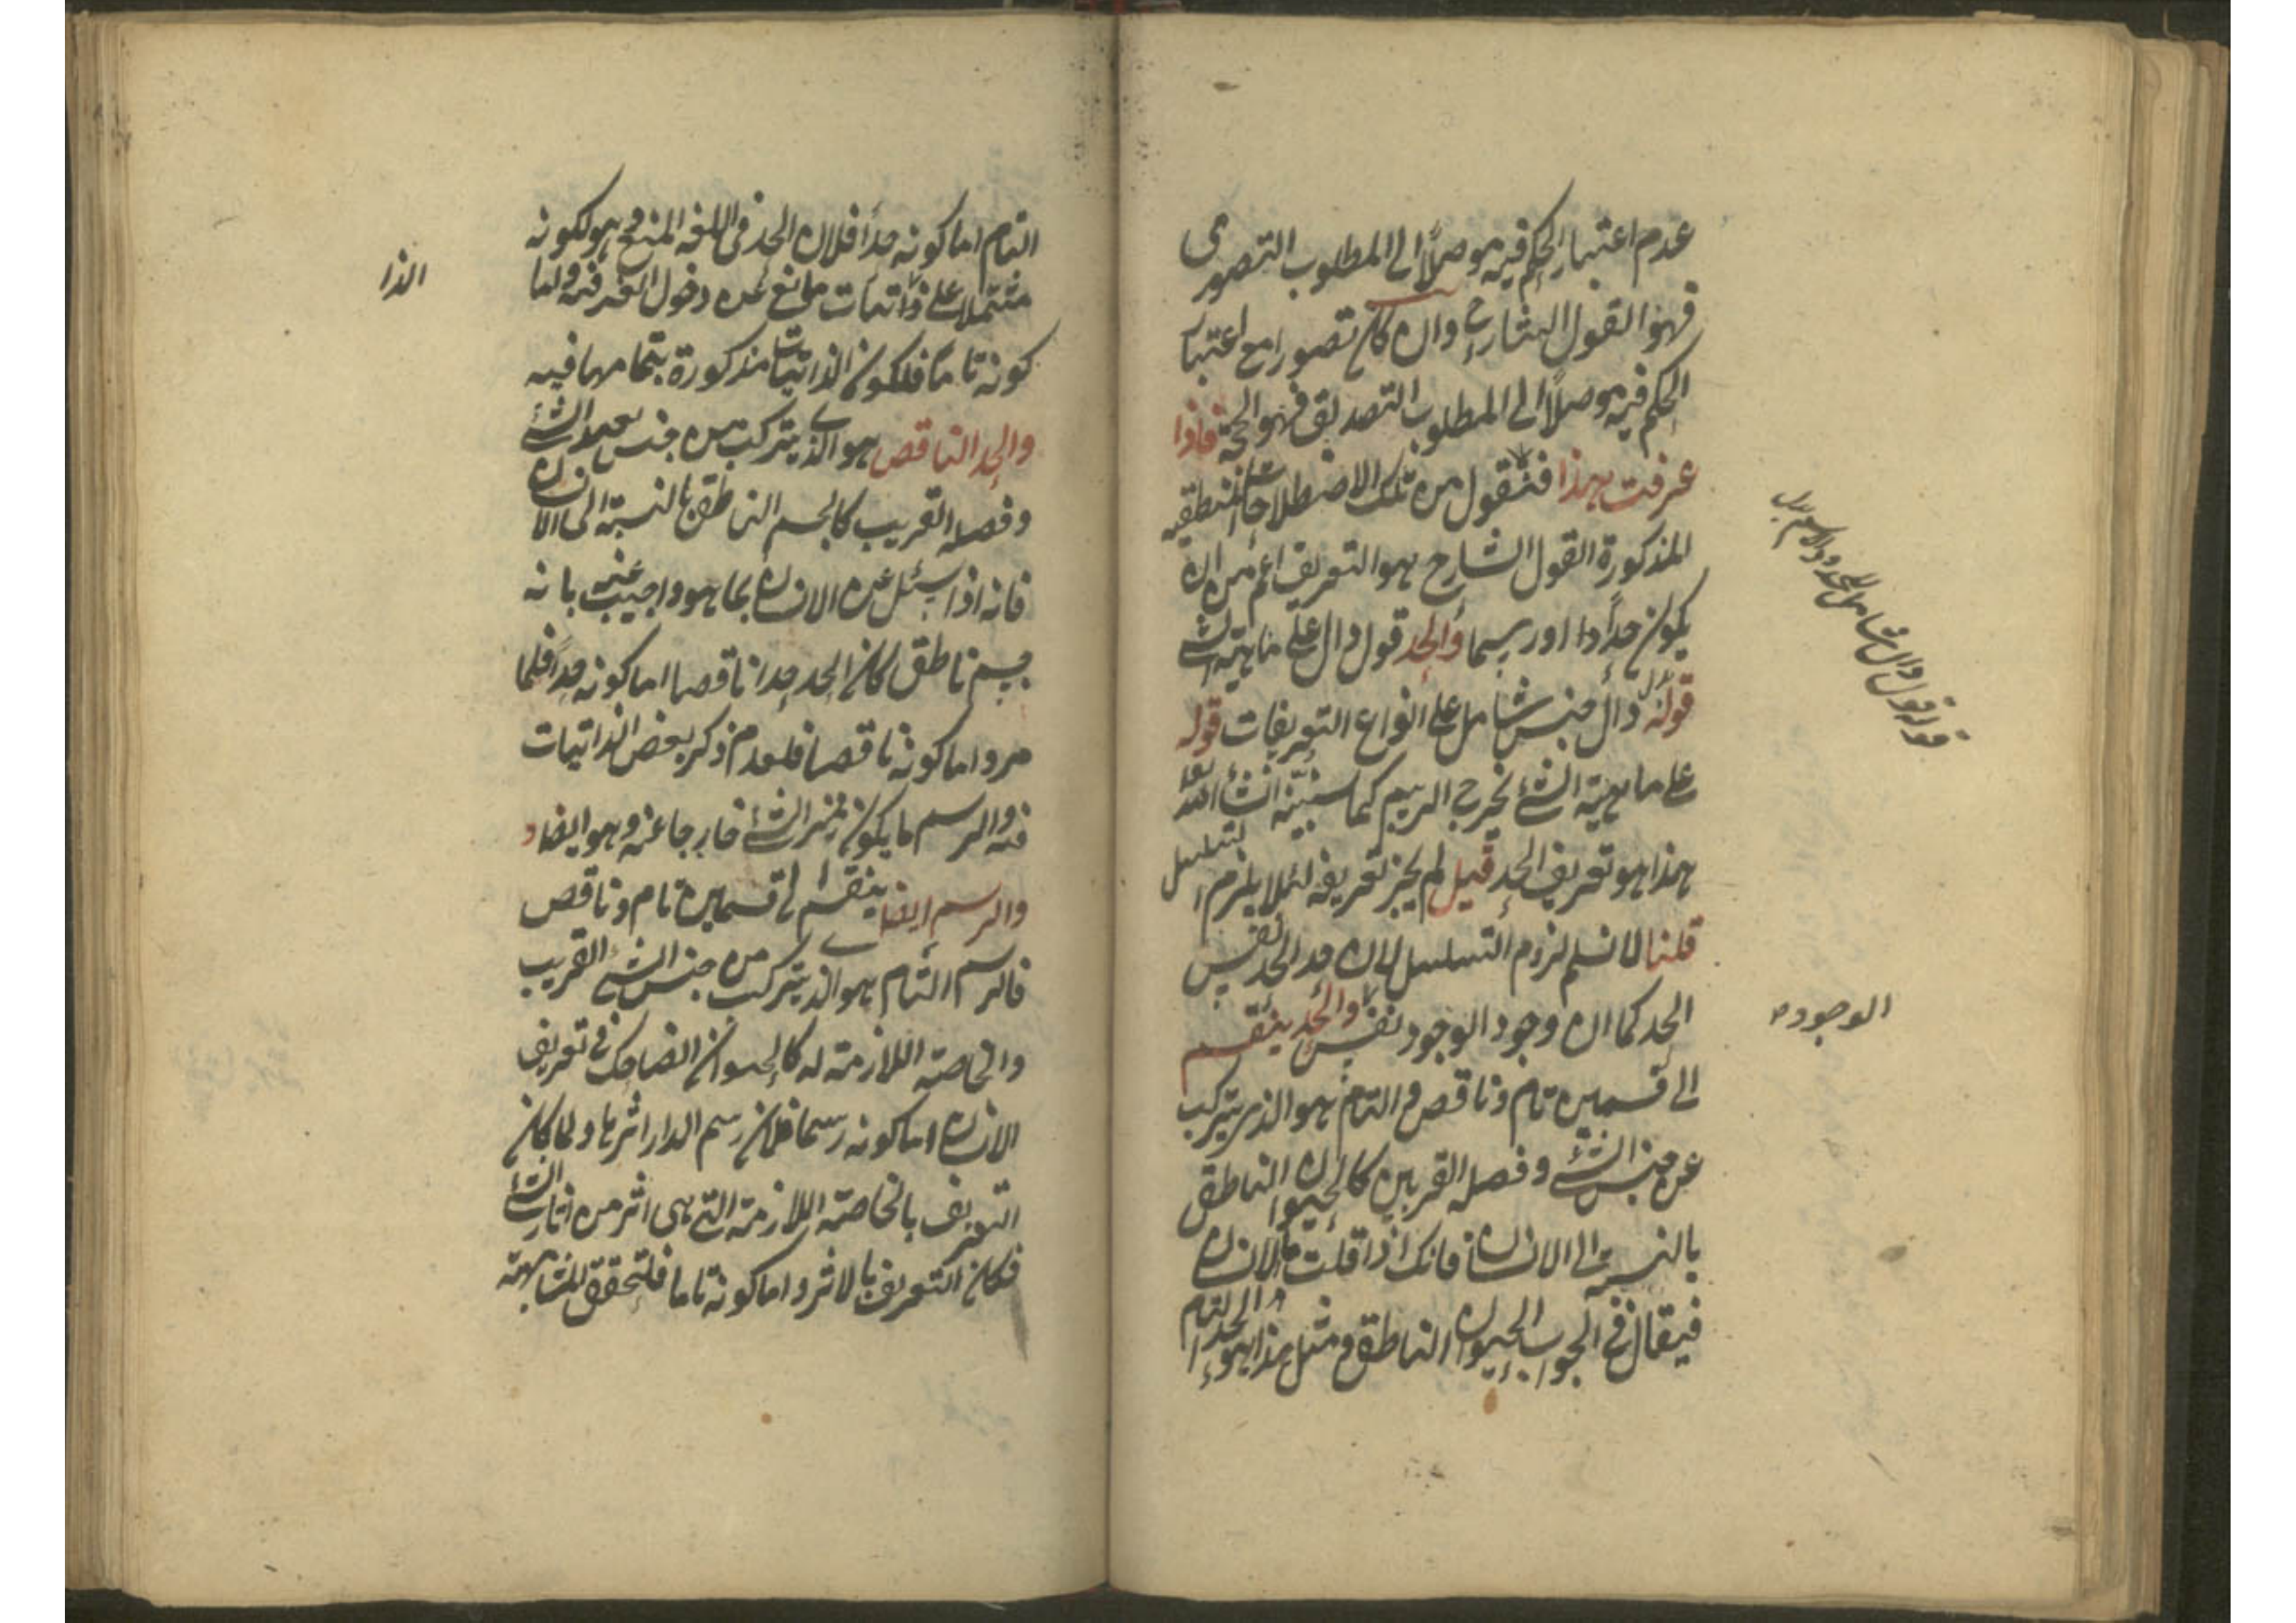 عدم اعتبار الحكم فيه موصلاً الى المطلوب التصورى
فهو القول الشارح وان كان تصورا مع اعتبار
الحكم فيه موصلاً الى المطلوب التصديقى فهو الحجة فاذا
عرفت هذا فنقول من تلك الاصطلاحات المنطقية
المذكورة القول الشارح هو التعريف اعم من ان
يكون حداً او رسما والحد قول دال على ماهية الشئ
قوله قول دال جنس شامل على انواع التعريفات قوله
على ماهية الشئ يخرج الرسم كما سنبينه انشاء الله تعا
هذا هو تعريف الحد قيل لم يجز تعريفه لئلا يلزم التسلسل
قلنا لا نسلم لزوم التسلسل لان حد الحد نفس
الحد كما ان وجود الوجود نفس والحد ينقسم
الوجود
الى قسمين تام وناقص والتام هو الذى يتركب
عن جنس الشئ وفصله القريبين كالحيوان الناطق
بالنسبة الى الانسان فانك اذا قلت ما الانسان
فيقال فى الجواب الحيوان الناطق ومثل هذا هو الحد التام
قوله قول دال شامل للحد والرسم
التام اما كونه حداً فلان الحد فى اللغة المنع وهو لكونه
مشتملا على ذاتيات مانع عن دخول الغير فيه واما
كونه تاما فلكون الذاتيات مذكورة بتمامها فيه
والحد الناقص هو الذى يتركب من جنس بعيد الشئ
وفصله القريب كالجسم الناطق بالنسبة الى الانسان
فانه اذا سئل عن الانسان بما هو واجيب عنه بانه
جسم ناطق كان الحد حدا ناقصا اما كونه حداً فلما
مر واما كونه ناقصا فلعدم ذكر بعض الذاتيات
فيه والرسم ما يكون مميز الشئ خارجا عنه وهو ايضا
والرسم ايضا ينقسم الى قسمين تام وناقص
فالرسم التام هو الذى يتركب من جنس الشئ القريب
والخاصة اللازمة له كالحيوان الضاحك فى تعريف
الانسان اما كونه رسما فلان رسم الدار اثرها ولما كان
التعريف بالخاصة اللازمة التى هى اثر من اثار الشئ
فكان التعريف بالاثر واما كونه تاما فلتحقق المشابهة
الذا